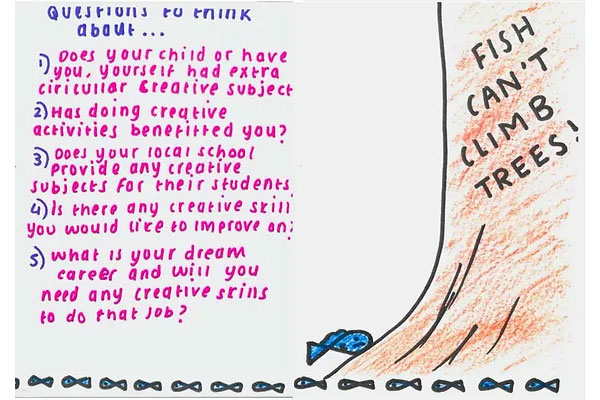 Questions to think
about...
1) Does your child or have
you, yourself had extra
ciricullar creative subject
2) Has doing creative
activities benefitted you?
3) Does your local school
provide any creative
subjects for their students
4) Is there any creative skill
you would like to improve on?
5) What is your dream
career and will you
need any creative skills
to do that job?
FISH
CAN'T
CLIMB
TREES!